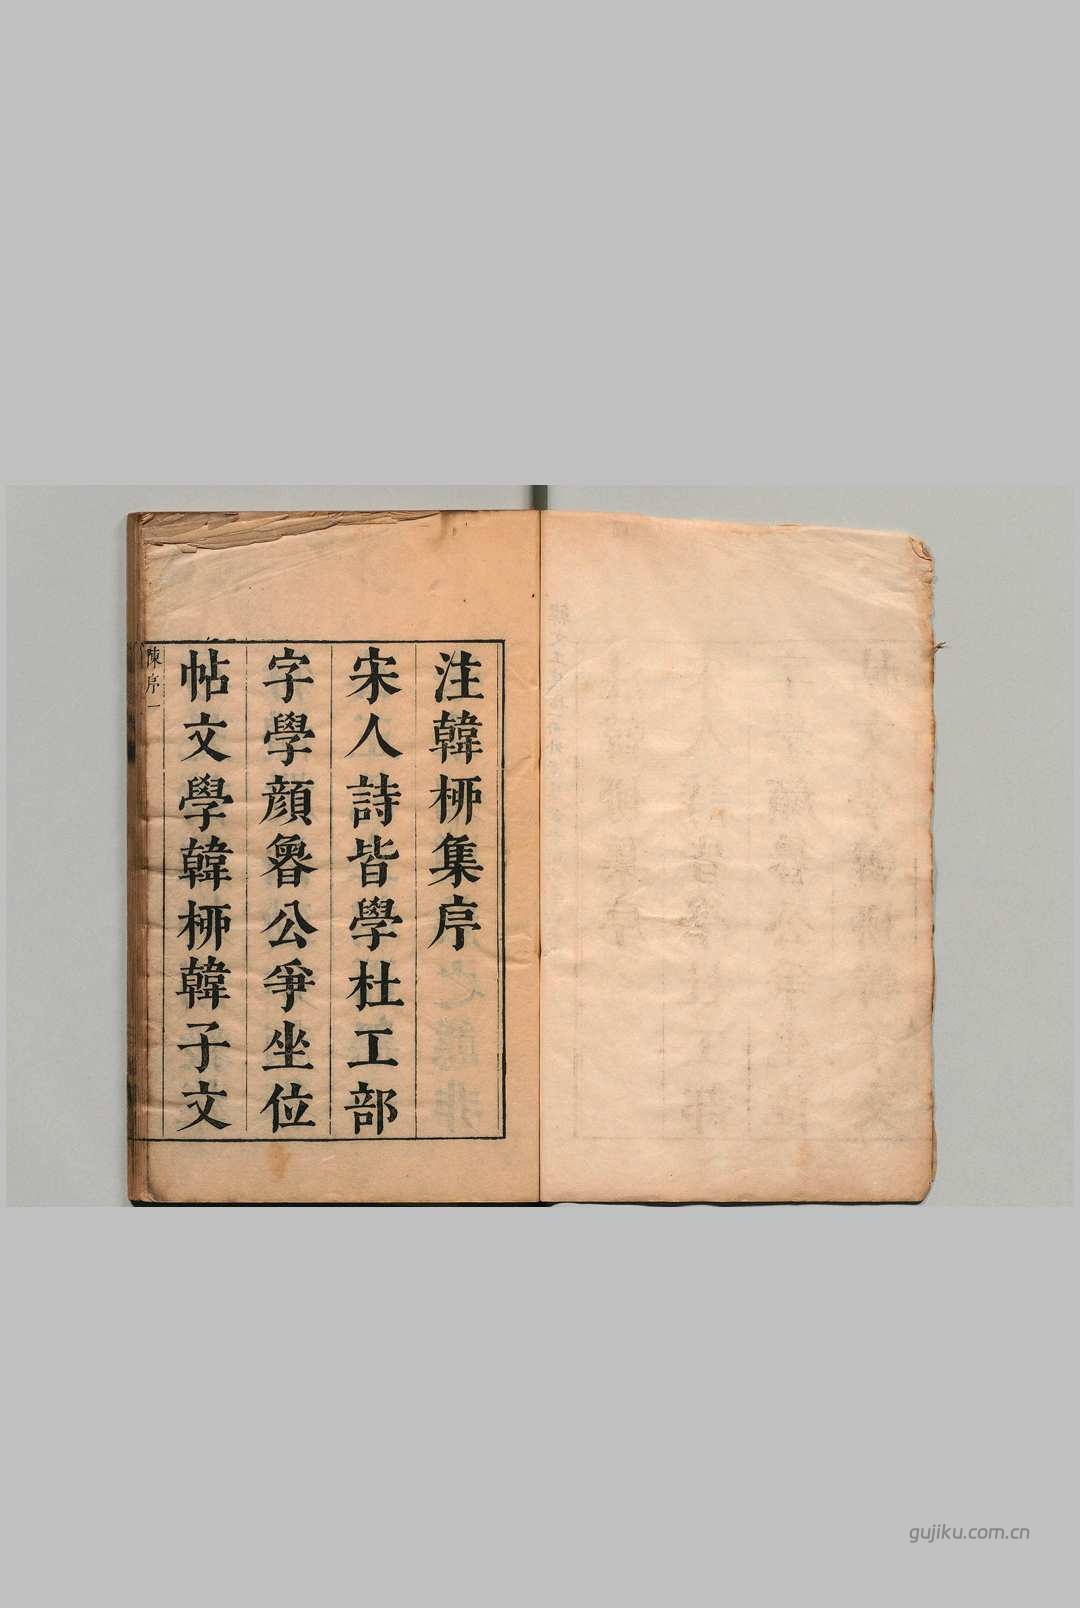 注韓栁集序
宋人詩皆學杜工部
字學顔魯公爭坐位
帖文學韓栁韓子文
陳序一
gujiku.com.cn